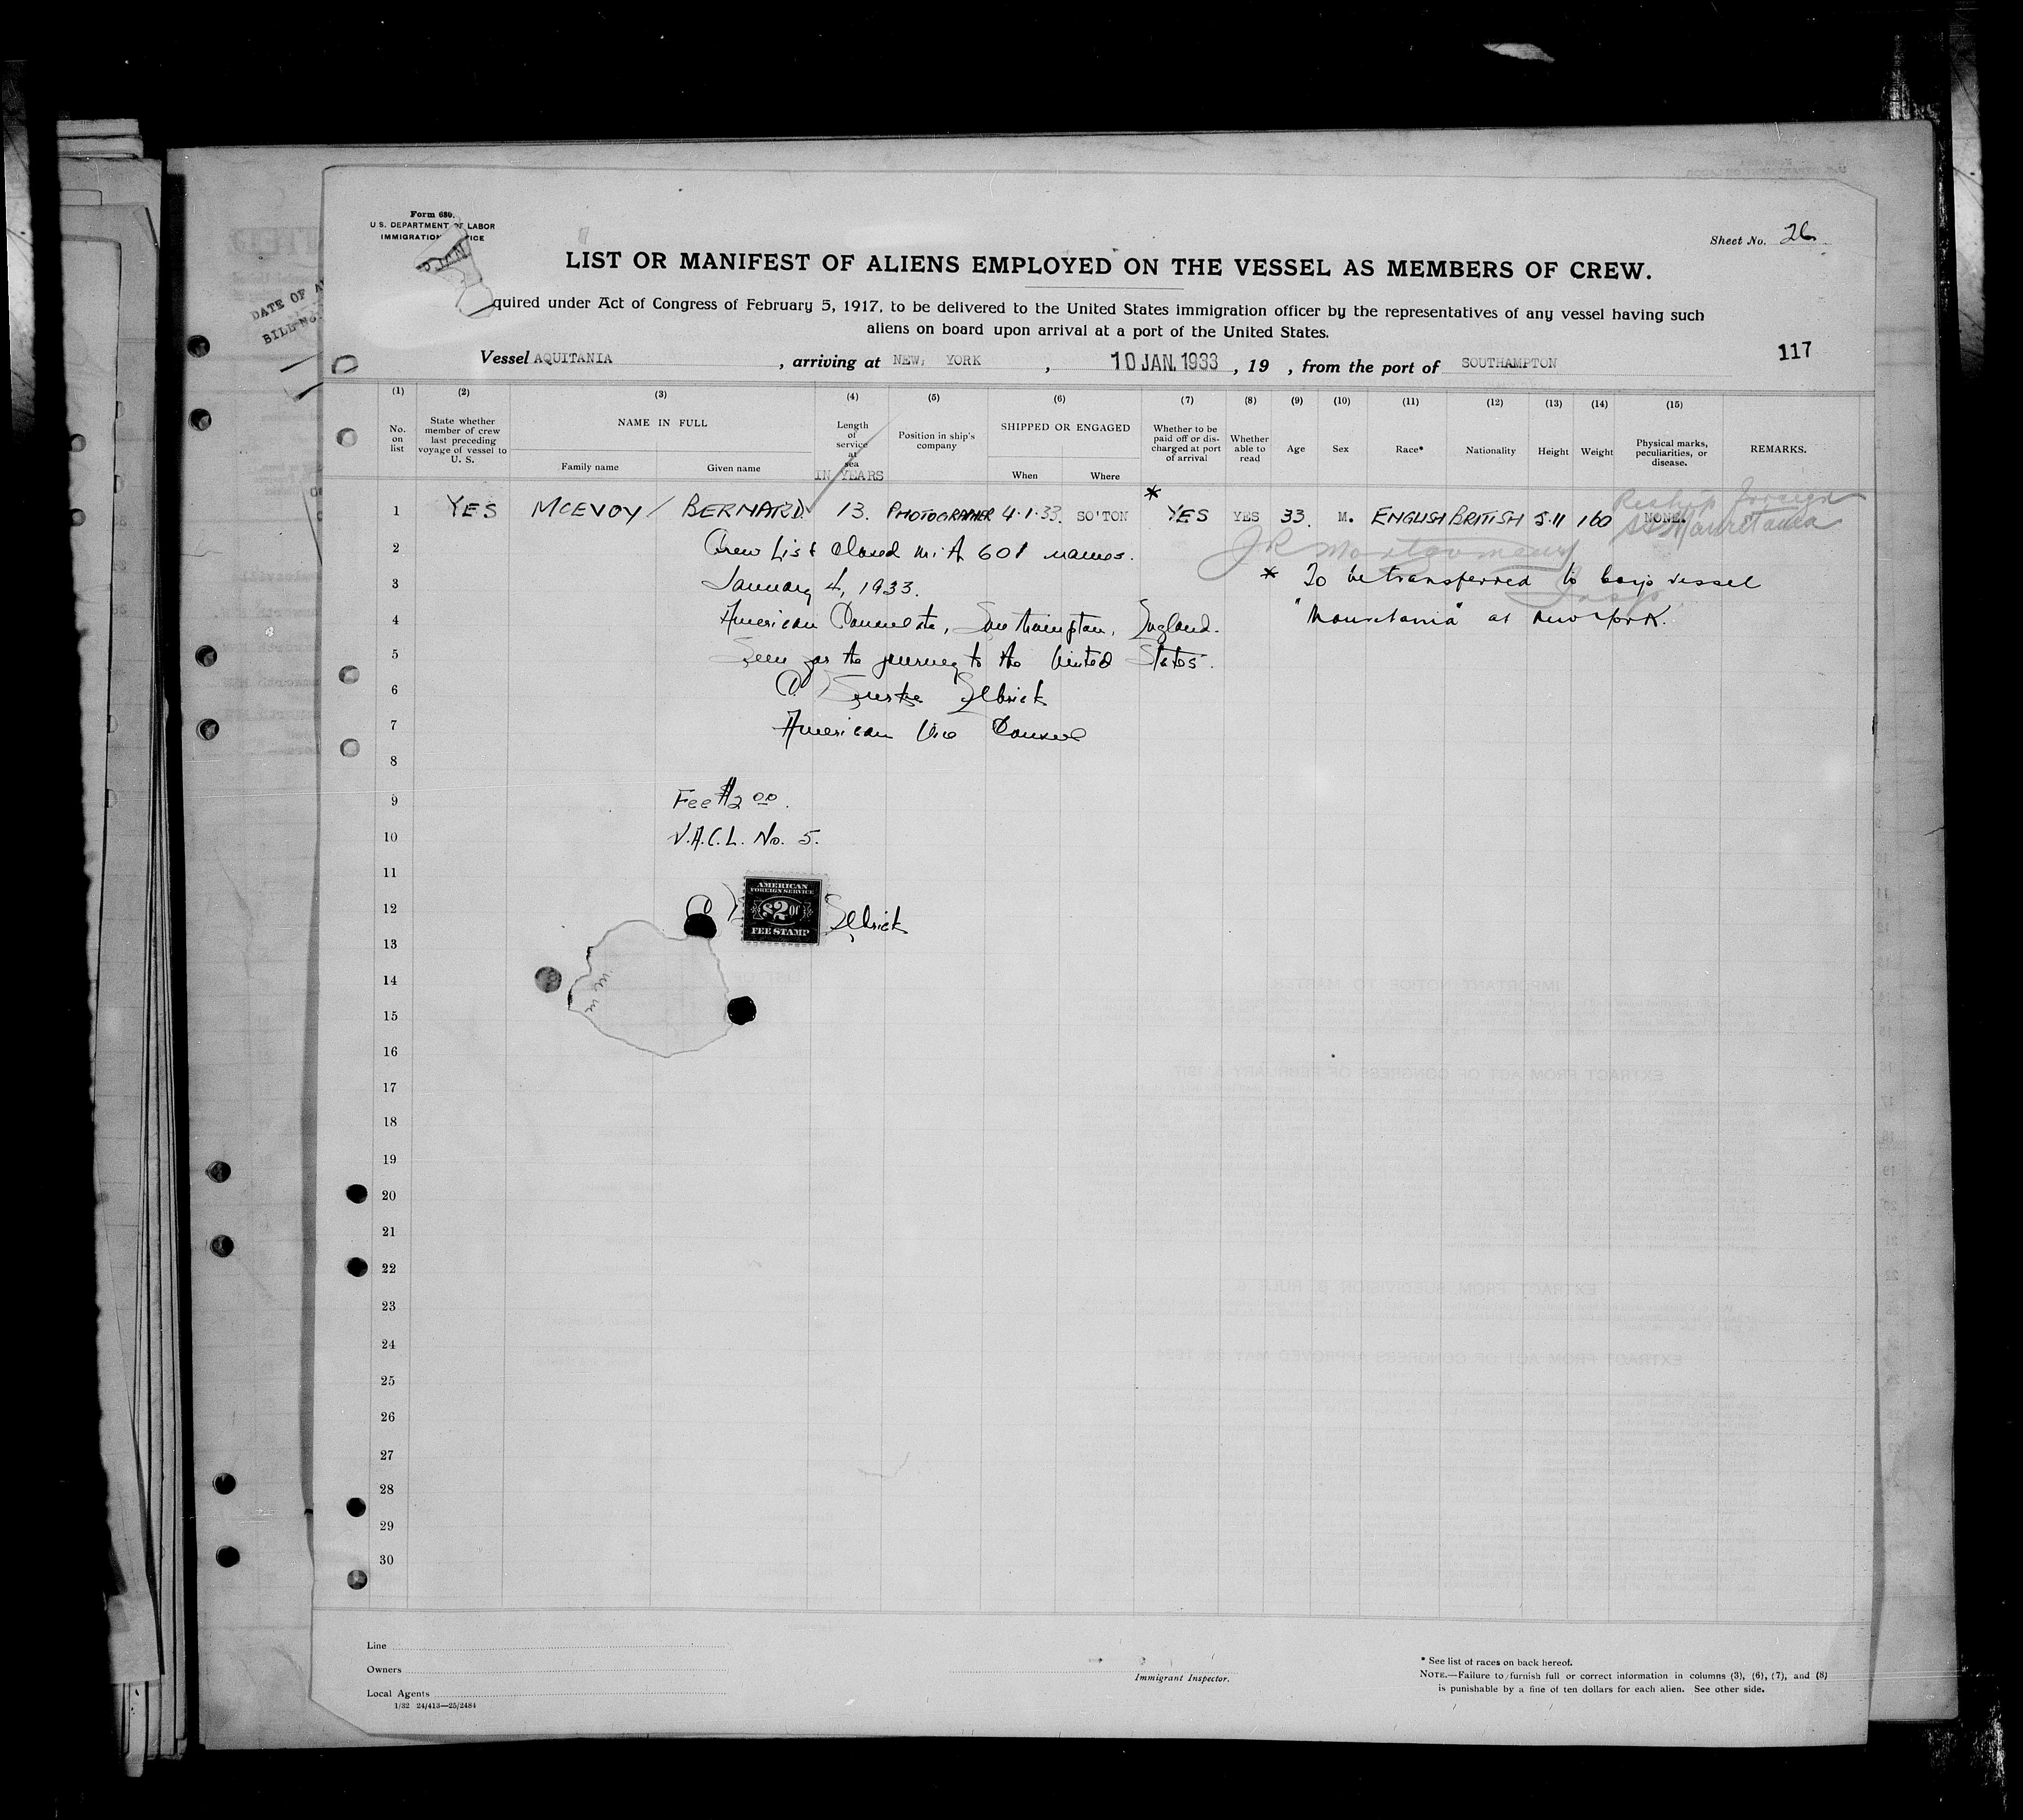 Form 680.
U.S. DEPARTMENT OF LABOR
IMMIGRATION
Sheet No. 26
LIST OR MANIFEST OF ALIENS EMPLOYED ON THE VESSEL AS MEMBERS OF CREW.
quired under Act of Congress of February 5, 1917, to be delivered to the United States immigration officer by the representatives of any vessel having such
aliens on board upon arrival at a port of the United States.
Vessel AQUITANIA , arriving at NEW YORK , 10 JAN. 1933 , 19 , from the port of SOUTHAMPTON
117
DATE OF
BILL NO.
(1) (2) (3) (4) (5) (6) (7) (8) (9) (10) (11) (12) (13) (14) (15)
No. on list
State whether member of crew last preceding voyage of vessel to U. S.
NAME IN FULL
Family name
Given name
Length of service at sea
IN YEARS
Position in ship's company
SHIPPED OR ENGAGED
When
Where
Whether to be paid off or discharged at port of arrival
Whether able to read
Age
Sex
Race*
Nationality
Height
Weight
Physical marks, peculiarities, or disease.
REMARKS.
1 YES MCEVOY BERNARD 13. PHOTOGRAPHER 4·1·33. SO'TON * YES YES 33. M. ENGLISH BRITISH 5·11 160 NONE.
Reship foreign
SS Mauretania
2 Crew List closed with 601 names.
JR Montgomery
3 January 4, 1933.
* To be transferred to vessel
Insp.
4 American Consulate, Southampton, England.
"Mauretania" at New York.
5 Seen for the journey to the United States.
6 Elbrick
7 American Vice Consul
8
9 Fee $2 00.
10 V.A.C.L. No. 5.
11
AMERICAN
FOREIGN SERVICE
$2 00
FEE STAMP
12 Elbrick
13
14
15
16
17
18
19
20
21
22
23
24
25
26
27
28
29
30
Line
Owners
Local Agents
1/32 24/413—25/2484
Immigrant Inspector.
* See list of races on back hereof.
NOTE.—Failure to furnish full or correct information in columns (3), (6), (7), and (8)
is punishable by a fine of ten dollars for each alien. See other side.